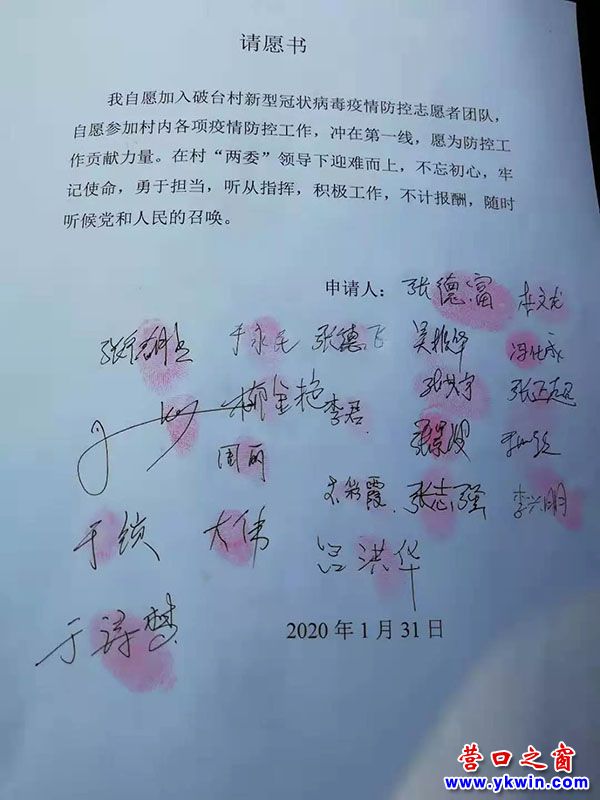 请愿书
我自愿加入破台村新型冠状病毒疫情防控志愿者团队，
自愿参加村内各项疫情防控工作，冲在第一线，愿为防控工
作贡献力量。在村“两委”领导下迎难而上，不忘初心，牢
记使命，勇于担当，听从指挥，积极工作，不计报酬，随时
听候党和人民的召唤。
申请人： 张德富 李文龙
于永民 张德飞 吴振华
柳金艳 李君
周丽
张志强 李兴明
于锁 大伟
吕洪华
于诗梦
2020年1月31日
营口之窗
www.ykwin.com